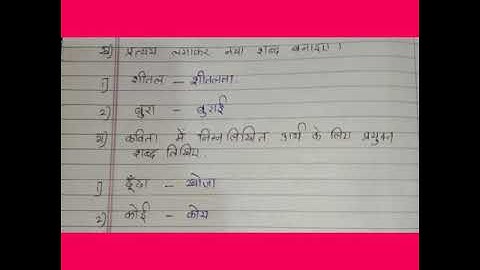 ख) प्रत्यय लगाकर नया शब्द बनाइए।
1) शीतल – शीतलता
2) बुरा – बुराई
ग) कविता में निम्नलिखित अर्थ के लिए प्रयुक्त
शब्द लिखिए.
1) ढूँढा – खोजा
2) कोई – कोय